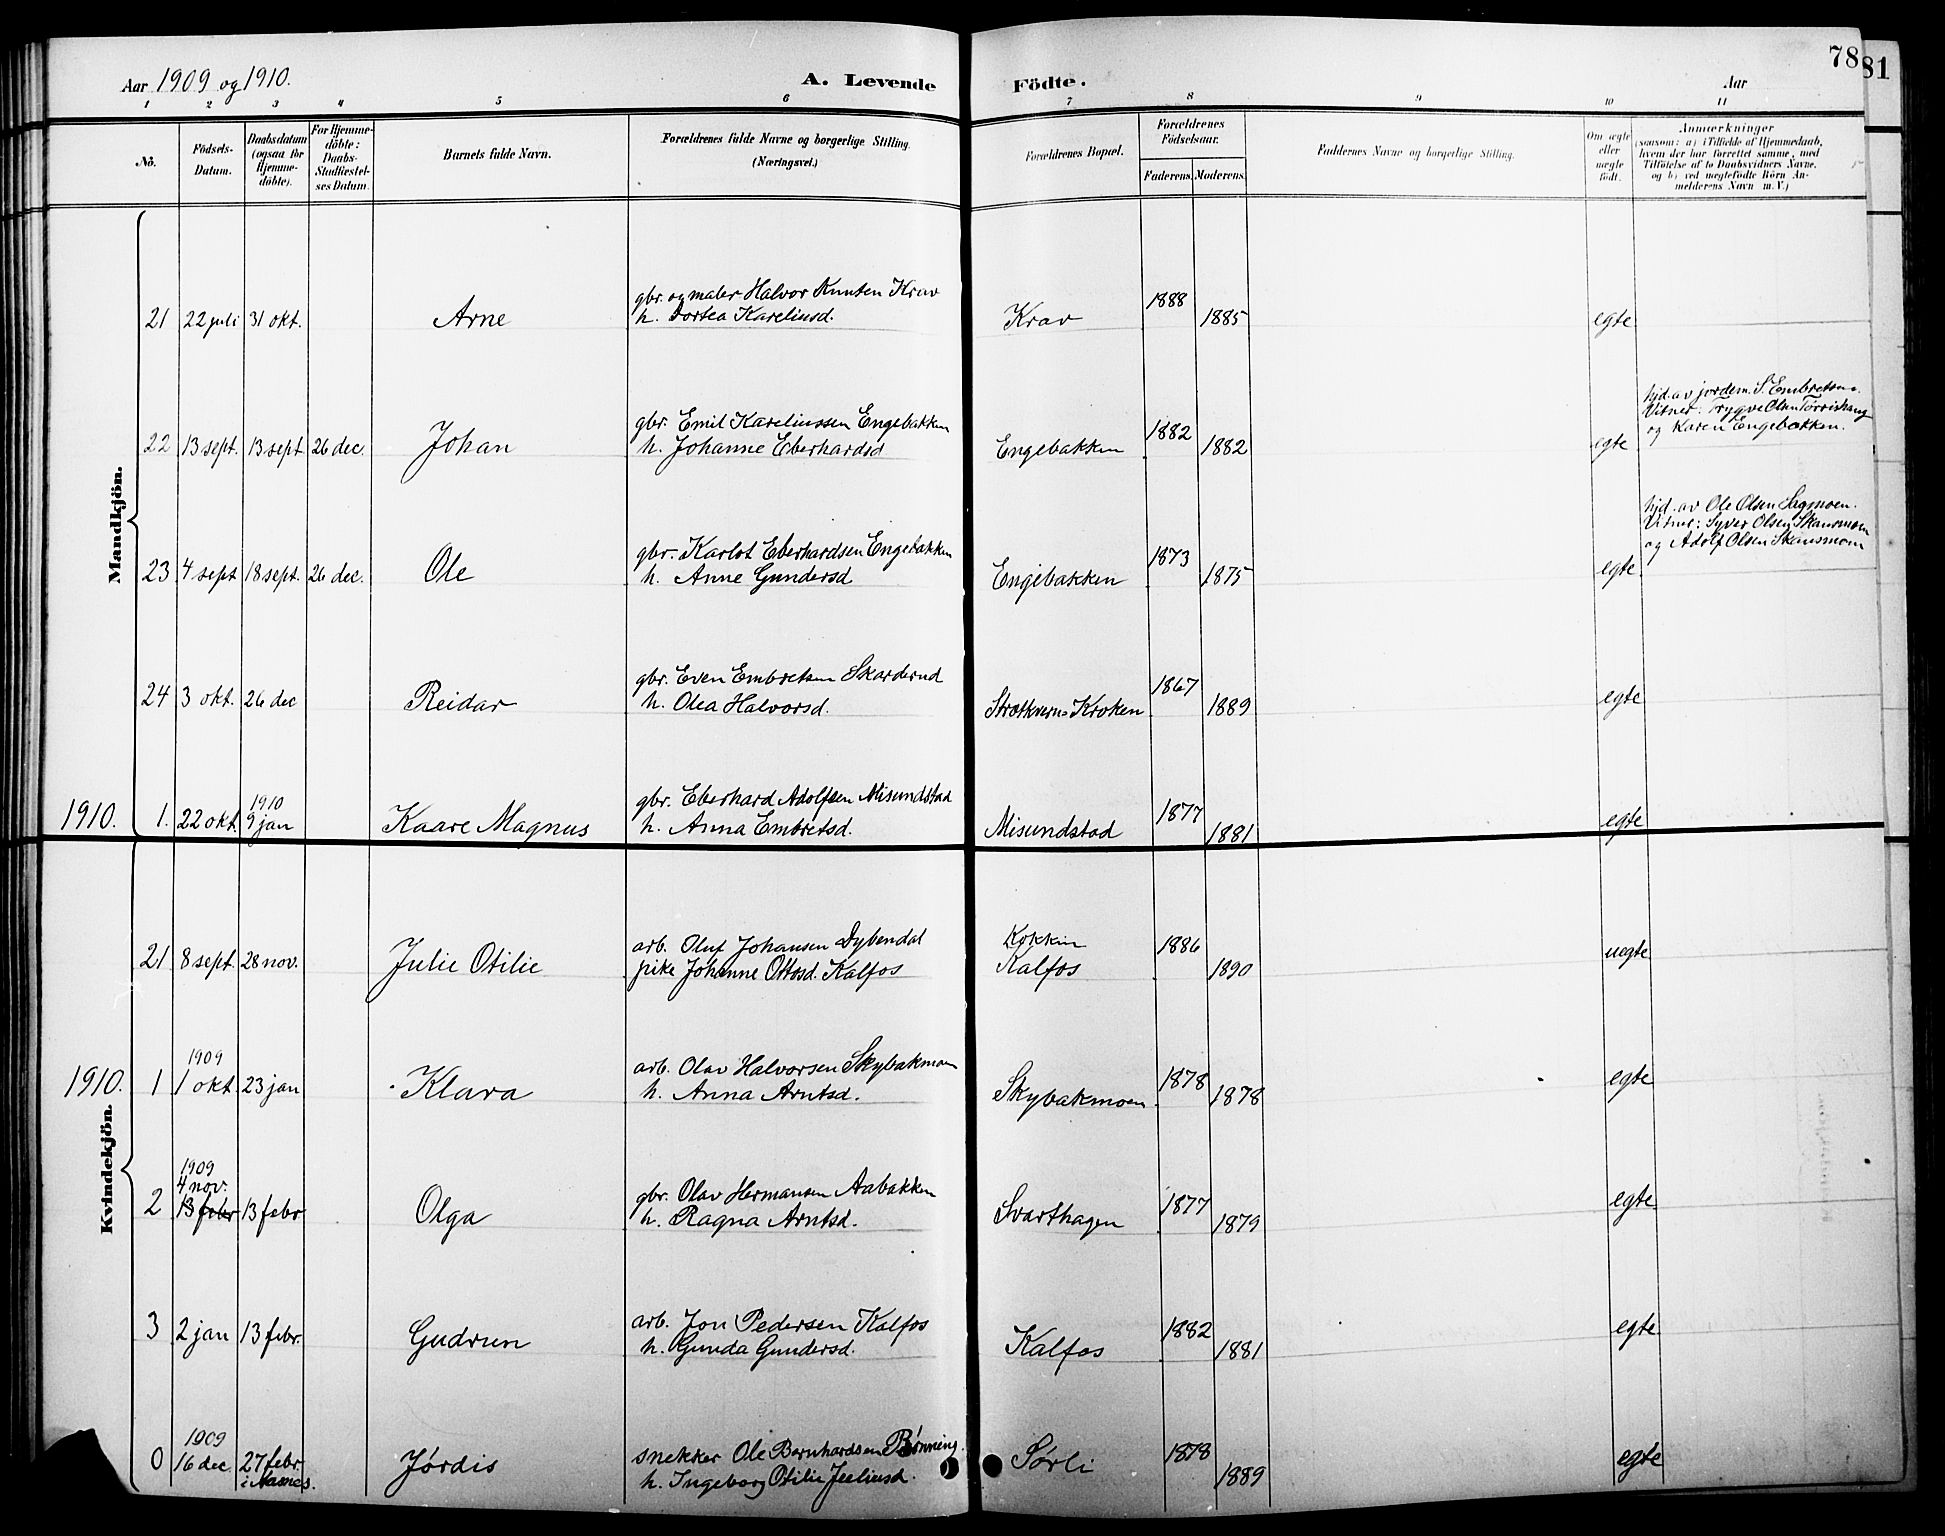 Aar 1909 og 1910.
A. Levende Födte.
Aar
78
81
1 2 3 4 5 6 7 8 9 10 11
No.
Födsels-Datum.
Daabsdatum (ogsaa för Hjemmedöbte).
For Hjemmedöbte: Daabs-Stadfæstelses Datum.
Barnets fulde Navn.
Forældrenes fulde Navne og borgerlige Stilling. (Næringsvei.)
Forældrenes Bopæl.
Forældrenes Födselsaar.
Faderens. Moderens.
Faddernes Navne og borgerlige Stilling.
Om ægte eller uægte födt.
Anmærkninger
(saasom: a) i Tilfælde af Hjemmedaab,
hvem der har forrettet samme, med
Tilföielse af to Daabsvidners Navne,
og b) ved uægtefödte Börn An-
melderens Navn m. V.)
Mandkjön.
gbr. og maler Halvor Knutsen Krav 1888
21 22 juli 31 okt. Arne h. Dortea Kareliusd. Krav 1885 egte
hjd. av jordem. S. Embretsen.
Vitner: Trygve Olsen
og Karen Engebakken.
gbr. Emil Kareliussen Engebakken 1882
22 13 sept. 13 sept. 26 dec. Johan h. Johanne Eberhardsd Engebakken 1882 egte
hjd. av Ole Olsen Sagmoen.
Vitner: Syver Olsen Skansmoen
og Adolf Olsen Skansmoen
gbr. Karlot Eberhardsen Engebakken 1873
23 4 sept 18 sept. 26 dec. Ole h. Anne Gundersd Engebakken 1875 egte
gbr. Even Embretsen Skarderud 1867
24 3 okt. 26 dec Reidar h. Olea Halvorsd. Kroken 1889 egte
1910 gbr. Eberhard Adolfsen Misundstad 1877
1910. 1. 22 okt. 9 jan Kaare Magnus h. Anna Embretsd. Misundstad 1881 egte
Kvindekjön.
arb. Oluf Johansen Dybendal 1886
21 8 sept. 28 nov. Julie Otilie pike Johanne Ottosd. Kalfos Kalfos 1890 uegte
1909 arb. Olav Halvorsen Skybakmoen 1878
1910. 1 1 okt. 23 jan Klara h. Anna Arntsd. Skybakmoen 1878 egte
1909
4 nov. gbr. Olav Hermansen Aabakken 1877
2 13 febr 13 febr Olga h. Ragna Arntsd. Svarthagen 1879 egte
arb. Jon Pedersen Kalfos 1882
3 2 jan 13 febr. Gudrun h. Gunda Gundersd. Kalfos 1881 egte
1909 snekker Ole Bernhardsen Rønning. 1878
0 16 dec. 27 febr i Aasnes. Jørdis h. Ingeborg Otilie Sørli 1889 egte